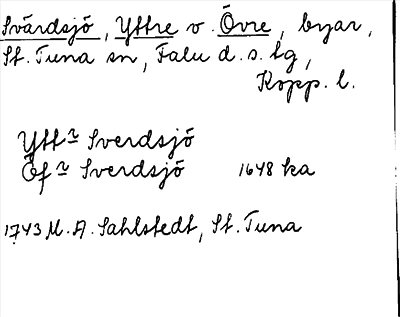 Svärdsjö, Yttre o. Övre, byar,
St. Tuna sn, Falu d. s. lg,
Kopp. l.
Ytt~ Sverdsjö
Öf~ Sverdsjö 1648 ka
1743 M. A. Sahlstedt, St. Tuna